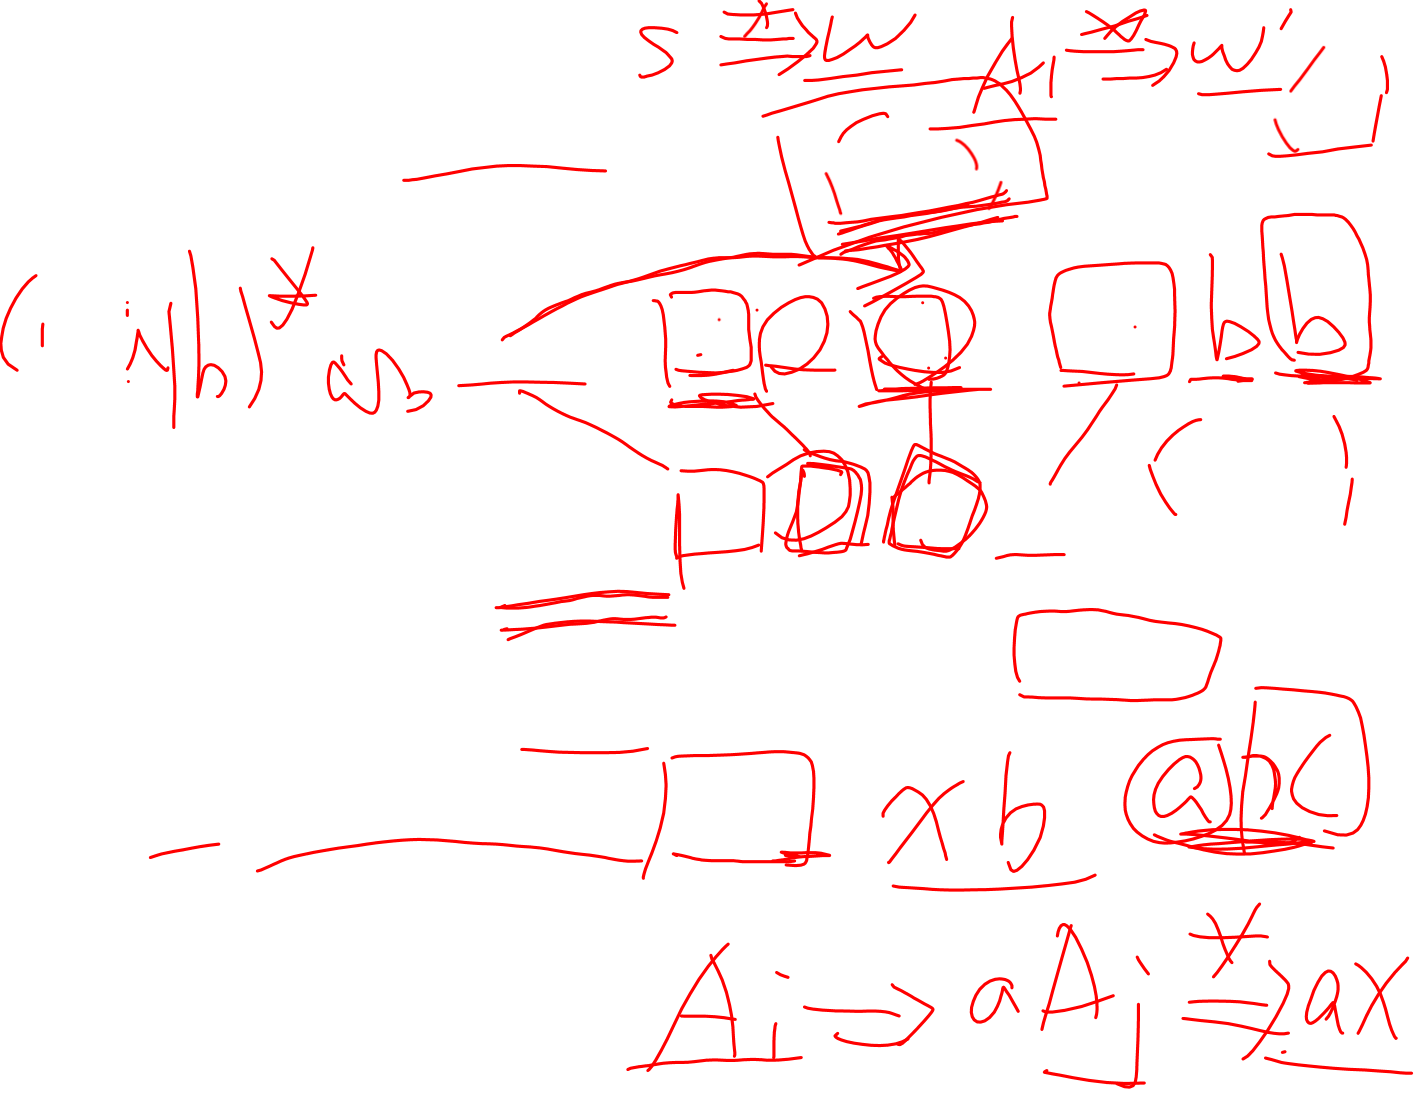 S *⇒ w A₁ *⇒ w'
( a|b)* ab
b b
x b abc
Aᵢ → aAⱼ *⇒ ax